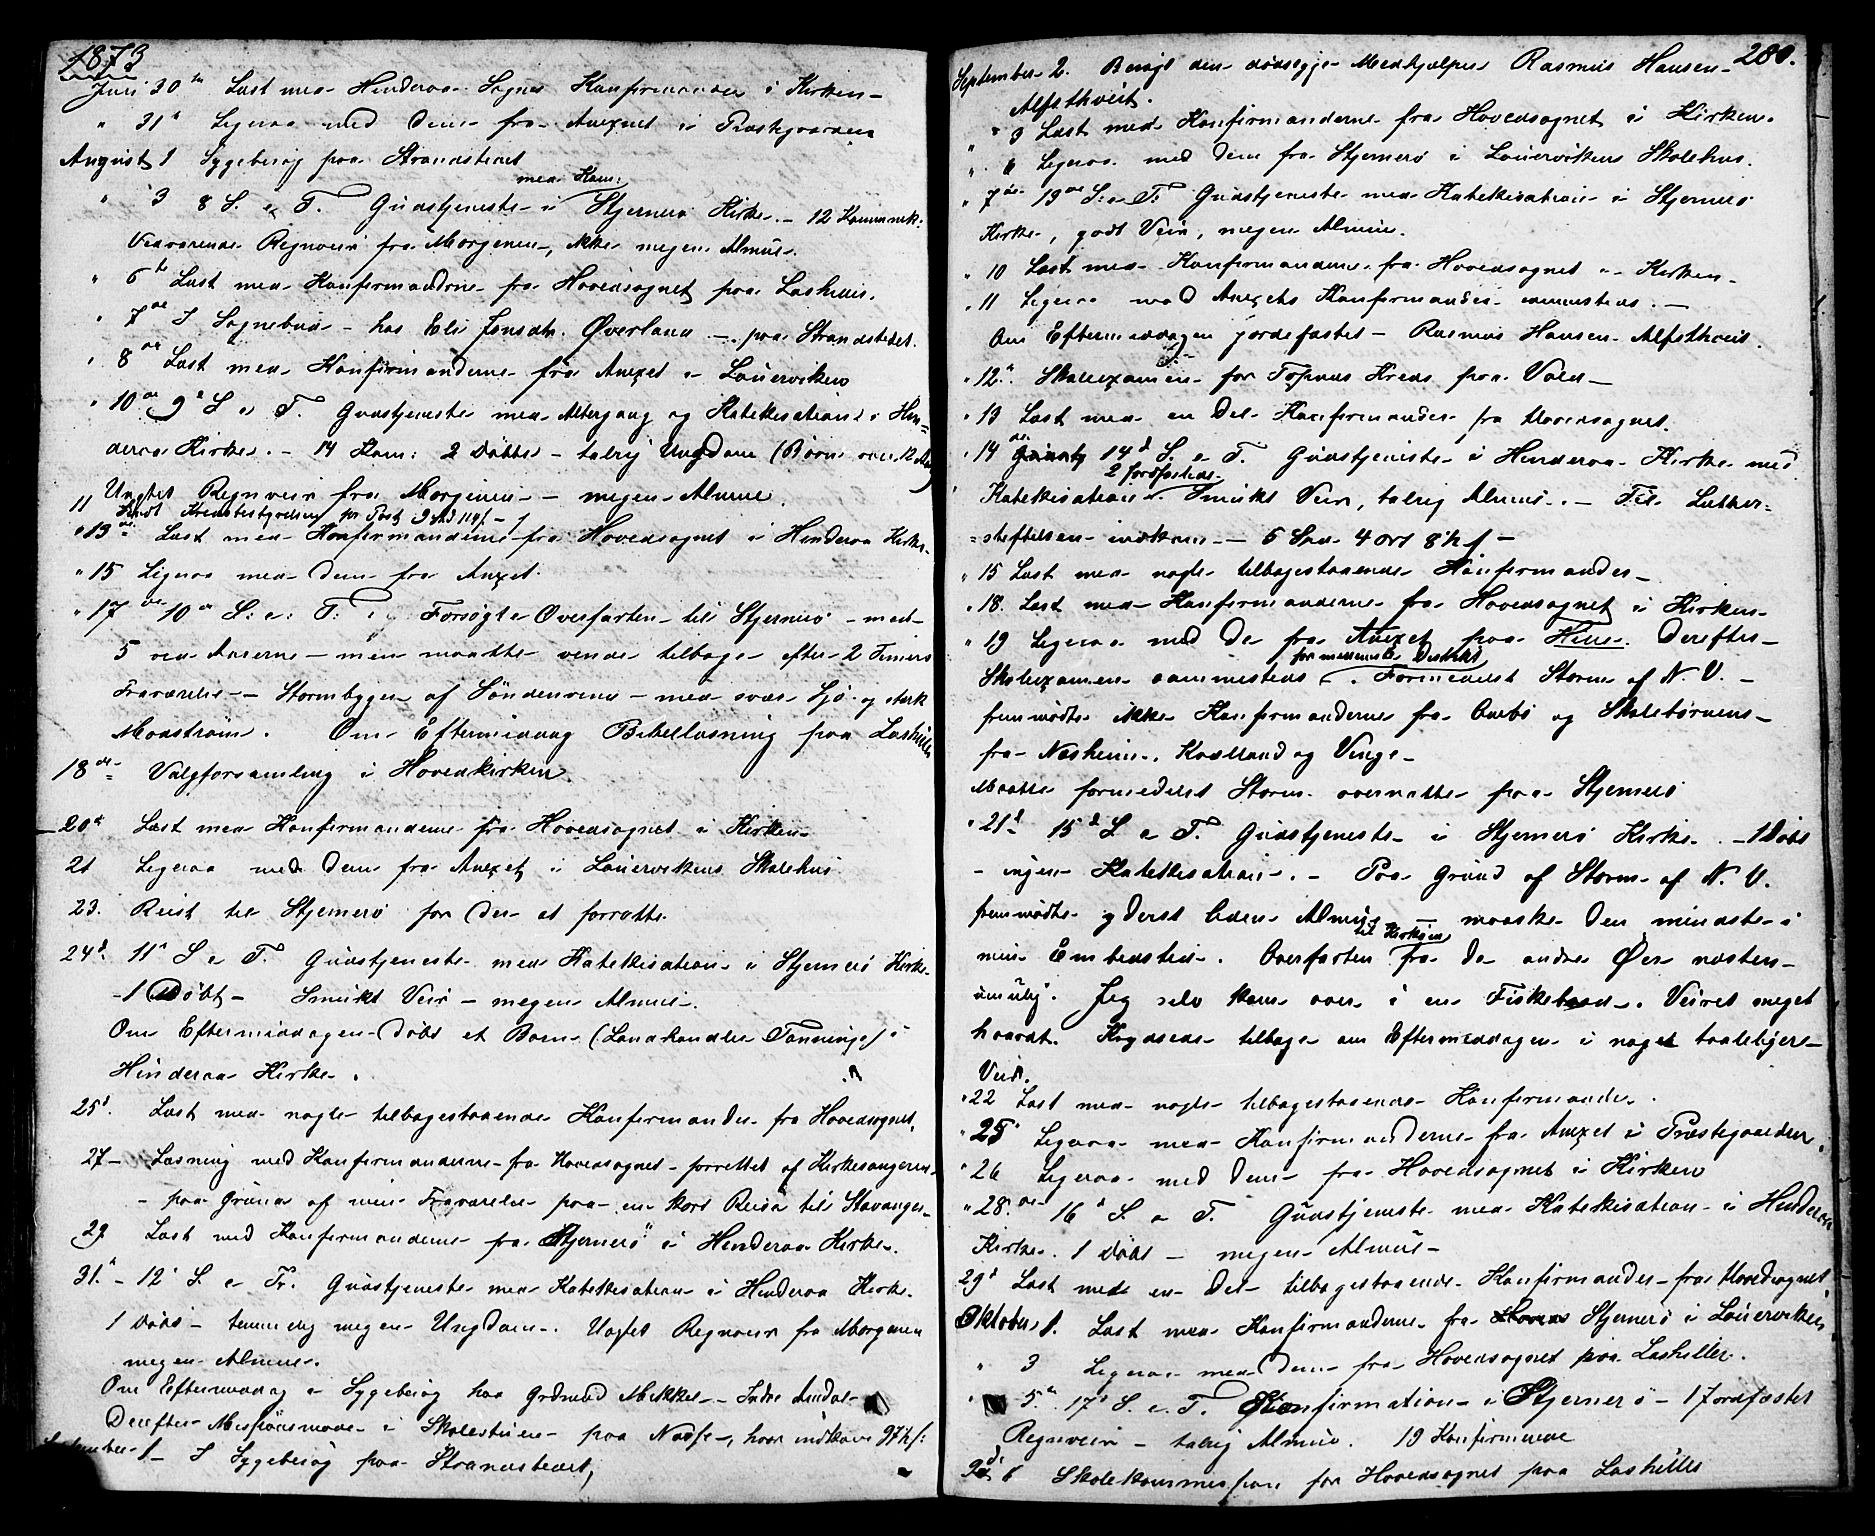 1873
Juli 30te Læst med Hinderaa Sogns Konfirmander i Kirken
" 31te Ligesaa med dem fra Anexet i Præstegaarden
August 1 Sygebesøg paa Strandstedet
med Kom:
" 3 8 S. e. T. Gudstjeneste i Stjernerø Kirke. - 12 Kommunik.
Vedvarende Regnveir fra Morgenen, ikke megen Almue.
" 6te Læst med Konfirmanderne fra Hovedsognet paa Lashuus.
" 7de I Sognebud - hos Eli Jonsdtr. Øverland - paa Strandstedet.
" 8de Læst med Konfirmanderne fra Anexet i Louervikens
" 10de 9d S e T. Gudstjeneste med Altergang og Katekisation i Hin=
deraa Kirke. - 14 Kom: 2 døbte - talrig Ungdom (Børn over 12 Aar)
Uagtet Regnveir fra Morgenen - megen Almue.
11 Sendt Kredsbestyrelsen for Post 9 Spd 114 s -
" 13de Læst med Konfirmanderne fra Hovedsognet i Hinderaa Kirke
" 15 Ligesaa med dem fra Anexet.
" 17de 10de S: e: T: Forsøgte Overfarten til Stjernerø - med
5 ved Aarerne - men maatte vende tilbage efter 2 Timers
Fraværelse - Stormbyger af Søndenvind - med svær Sjø og stærk
Modstrøm. Om Eftermiddag Bibellæsning paa Lashiller
18de Valgforsamling i Hovedkirken.
20de Læst med Konfirmanderne fra Hovedsognet i Kirken
21 Ligesaa med dem fra Anexet i Louervikens Skolehus
23. Reist til Stjernerø for der at forrette.
24d. 11te S e T. Gudstjeneste med Katekisation i Stjernerø Kirke
- 1 Døbt - Smukt Veir - megen Almue.
Om Eftermiddagen døbt et Barn (Landhandler Tønninge) i
Hinderaa Kirke.
25d. Læst med nogle tilbagestaaende Konfirmander fra Hovedsognet.
27 - Læsning med Konfirmanderne fra Hovedsognet - forrettet af Kirkesangeren
- paa Grund af min Fraværelse paa en kort Reise til Stavanger
29 Læst med Konfirmanderne fra Stjernerø i Hinderaa Kirke.
31te - 12te S. e Tr. Gudstjeneste med Katekisation i Hinderaa Kirke.
1 døbt - temmelig megen Ungdom. Uagtet Regnveir fra Morgenen
megen Almue.
Om Eftermiddag i Sygebesøg hos Mikkel Indre
Derefter Missionsmøde i Skolestuen paa hvor indkom 97 s:
September 1 - I Sygebesøg paa Strandstedet,
280.
September 2. Besøgt den dødssyge Medhjælper Rasmus Hansen
Alfsthveit.
" 3 Læst med Konfirmanderne fra Hovedsognet i Kirken.
" 4 Ligesaa med dem fra Stjernerø i Louervikens Skolehus.
" 7de 13de S: e. T. Gudstjeneste med Katekisation i Stjernerø
Kirke, godt Veir, megen Almue.
" 10 Læst med Konfirmanderne fra Hovedsognet i Kirken
" 11 Ligesaa med Anexets Konfirmander sammesteds. -
Om Eftermiddagen jordfæstet - Rasmus Hansen Alfsthveit.
" 12te Skoleexamen for Topnes Kreds paa Vold -
" 13 Læst med en Del Konfirmander fra Hovedsognet.
" 14de 14d S. e T. Gudstjeneste i Hinderaa Kirke med
2 jordfæstede
Katekisation Smukt Veir, talrig Almue. - Til Luther=
=stiftelsen indkom - 6 Spd 4 ort 8 s -
" 15 Læst med nogle tilbagestaaende Konfirmander
" 18. Læst med Konfirmanderne fra Hovedsognet i Kirken
" 19 Ligesaa med de fra Anexet paa Derefter
Skoleexamen sammesteds. Formedelst Storm af N. V. -
fremmødte ikke Konfirmanderne fra Ombo og Skolebørnene
fra Næsheim, Kvalland og Vinge
Maatte formedelst Storm overnatte paa Stjernerø
" 21d 15d S e T. Gudstjeneste i Stjernerø Kirke. - 1 Døbt
- ingen Katekisation. - Paa Grund af Storm af N. V.
fremmødte yderst liden Almue - maaske den mindste i
til Kirkøen
min Embedstid. Overfarten fra de andre Øer næsten
umulig. Jeg selv kom over i en Fiskebaad. Veiret meget
haardt. Krydsede tilbage om Eftermiddagen i noget taaleligere
Veir.
" 22 Læst med nogle tilbagestaaende Konfirmander.
" 25 Ligesaa med Konfirmanderne fra Anexet i Præstegaarden.
" 26 Ligesaa med dem fra Hovedsognet i Kirken
" 28de 16d S. e T. Gudstjeneste med Katekisation i Hinderaa
Kirke. 1 døbt - megen Almue -
29d Læst med en Del tilbagestaaende Konfirmander fra Hovedsognet.
Oktober 1. Læst med Konfirmanderne fra Stjernerø i Louerviken
" 3 Ligesaa med dem fra Hovedsognet paa Lashiller.
" 5te 17d S. e. T. Konfirmation i Stjernerø - 1 jordfæstet
Regnveir - talrig Almue. 19 Konfirmerede
6 Skolekommission for Hovedsognet paa Lashiller